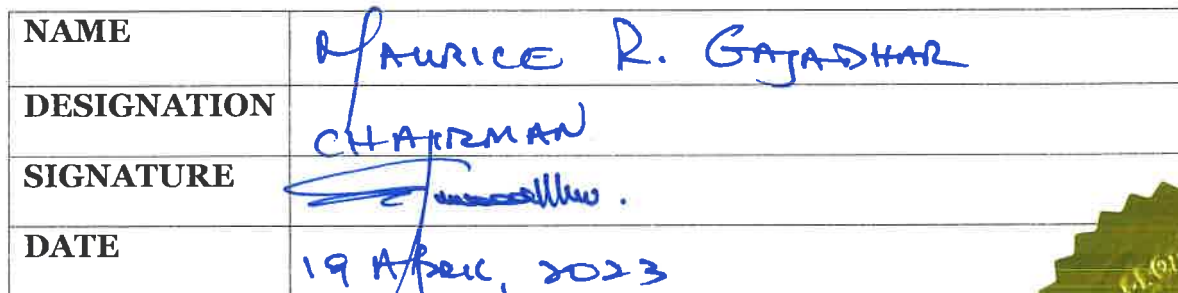 NAME MAURICE R. GAJADHAR
DESIGNATION CHAIRMAN
SIGNATURE
DATE 19 APRIL, 2023